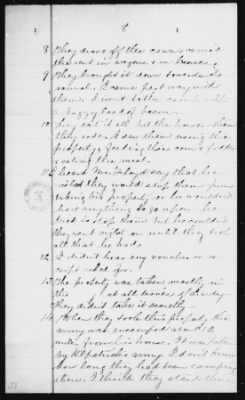 8
8 They drove off the cows & carried
the rest in wagons & on horses.
9 They brought it down towards
I came part way with
them. I went to the camp with
buggy load of bacon.
10 They eat it all but the horses & them
they rode. I saw them using this
property, feeding this corn & fodder
& eating the meat.
11 I heard Mr. Floyd say that he
wished they would stop them from
taking his property or he wouldn't
have anything to go upon. He
tried to stop them but he couldn't
they went right on until they took
all that he had.
12 I didn't hear any voucher or
receipt asked for.
13 The property was taken mostly in
the at all times of the day
they didn't take it secretly.
14 When they took this property the
army was encamped about 2
miles from his home. It was part
of Kilpatrick's army. I don't know
how long they had been camping
there. I think they staid there